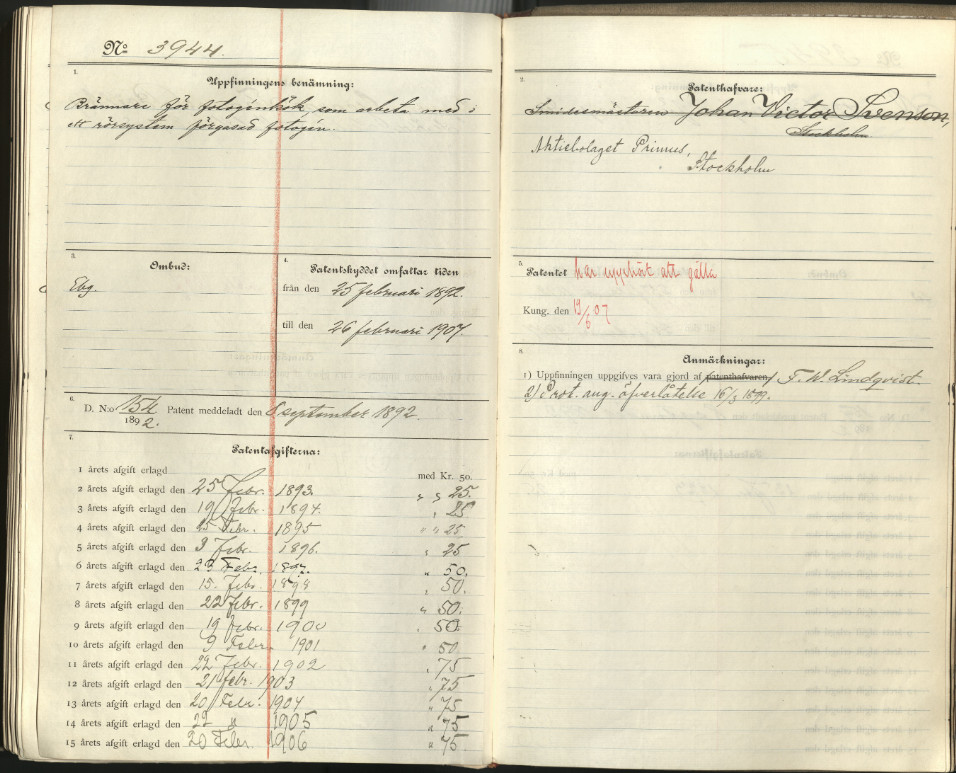 No 3944.
1.
Uppfinningens benämning:
Brännare för fotogenkök som arbeta med i
ett rörsystem förgasad fotogén.
3.
Ombud:
Ebg.
4.
Patentskyddet omfattar tiden
från den 25 februari 1892.
till den 26 februari 1907.
6.
D. N:o 154 Patent meddeladt den 8 september 1892.
1892.
7.
Patentafgifterna:
1 årets afgift erlagd med Kr. 50.
2 årets afgift erlagd den 25 febr. 1893. " " 25.
3 årets afgift erlagd den 19 febr. 1894. " 25
4 årets afgift erlagd den 25 Febr. 1895 " " 25
5 årets afgift erlagd den 3 Febr. 1896. " 25
6 årets afgift erlagd den 23 Febr. 1897. " 50.
7 årets afgift erlagd den 15. Febr. 1898 " 50.
8 årets afgift erlagd den 22 febr. 1899 " 50.
9 årets afgift erlagd den 19 febr. 1900 " 50.
10 årets afgift erlagd den 9 Febr. 1901 " 50
11 årets afgift erlagd den 22 Febr. 1902 " 75
12 årets afgift erlagd den 21 febr. 1903 " 75
13 årets afgift erlagd den 20 Febr. 1904 " 75
14 årets afgift erlagd den 22 " 1905 " 75
15 årets afgift erlagd den 20 Febr. 1906 " 75.
2.
Patenthafvare:
Smidesmästaren Johan Victor Svenson,
Stockholm
Aktiebolaget Primus,
Stockholm
5.
Patentet har upphört att gälla
Kung. den 19/6 07
8.
Anmärkningar:
1) Uppfinningen uppgifves vara gjord af patenthafvaren F. W. Lindqvist.
2) Prot. ang. öfverlåtelse 16/3 1899.